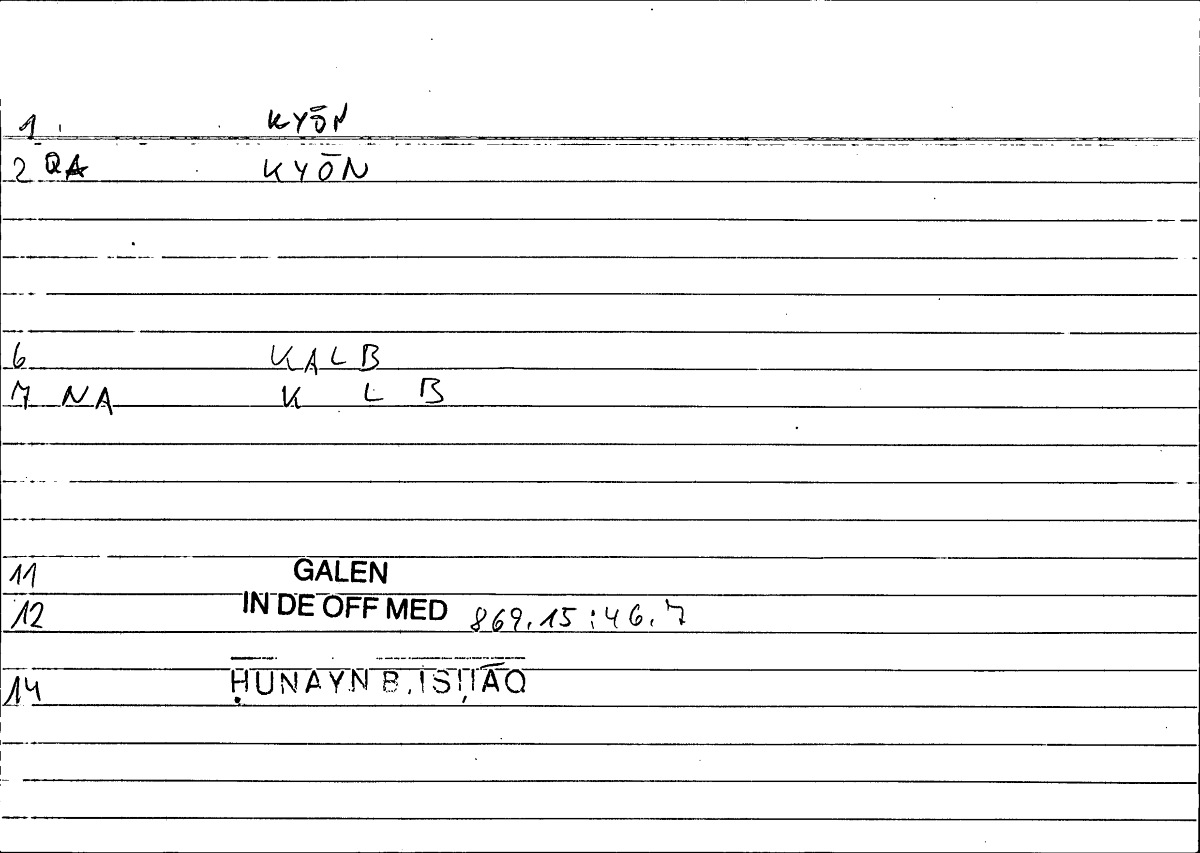 1 KYŌN
2 QA KYŌN
6 KALB
7 NA K L B
11 GALEN
12 IN DE OFF MED 869.15:46.7
14 ḤUNAYN B. ISḤĀQ